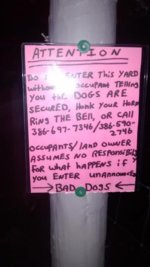 ATTENTION
Do NOT ENTER THIS YARD
without occupant TELLING
You the DOGS ARE
SECURED, Honk Your Horn
RING THE BELL, OR CALL
386-697-7346/386-590-
2796
OCCUPANTS/LAND OWNER
ASSUMES NO RESPONSIBILITY
FOR WHAT HAPPENS if
you ENTER UNANNOUNCED
BAD DOGS